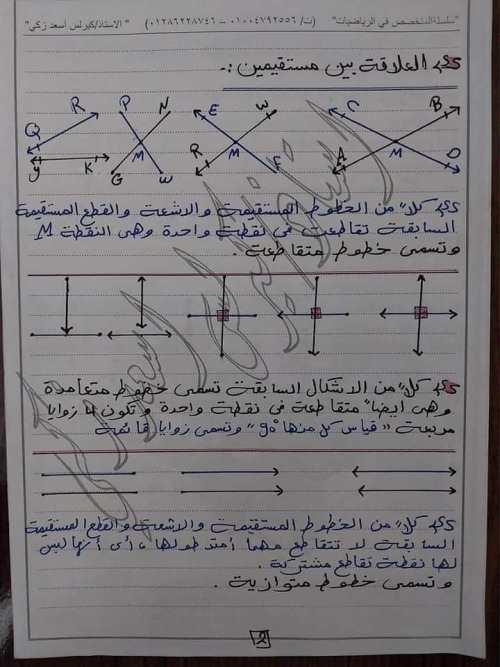 "سلسلة المتخصص في الرياضيات" (ت/ ٠١٠٠٤٧٩٢٥٥٦ – ٠١٢٨٦٢٢٨٧٤٦) "الاستاذ/كيرلس أسعد زكي"
العلاقة بين مستقيمين :-
R P N E W C B
Q M R M A M D
y K G W F
كلاً من الخطوط المستقيمة والاشعة والقطع المستقيمة
السابقة تقاطعت فى نقطة واحدة وهى النقطة M
وتسمى خطوط متقاطعة .
كلاً من الاشكال السابقة تسمى خطوط متعامدة
وهى ايضاً متقاطعة فى نقطة واحدة وتكون لها زوايا
مربعة " قياس كل منها 90° " وتسمى زوايا قائمة
كلاً من الخطوط المستقيمة والاشعة والقطع المستقيمة
السابقة لا تتقاطع مهما أمتد طولها ، أى أنها ليس
لها نقطة تقاطع مشتركة .
وتسمى خطوط متوازية .